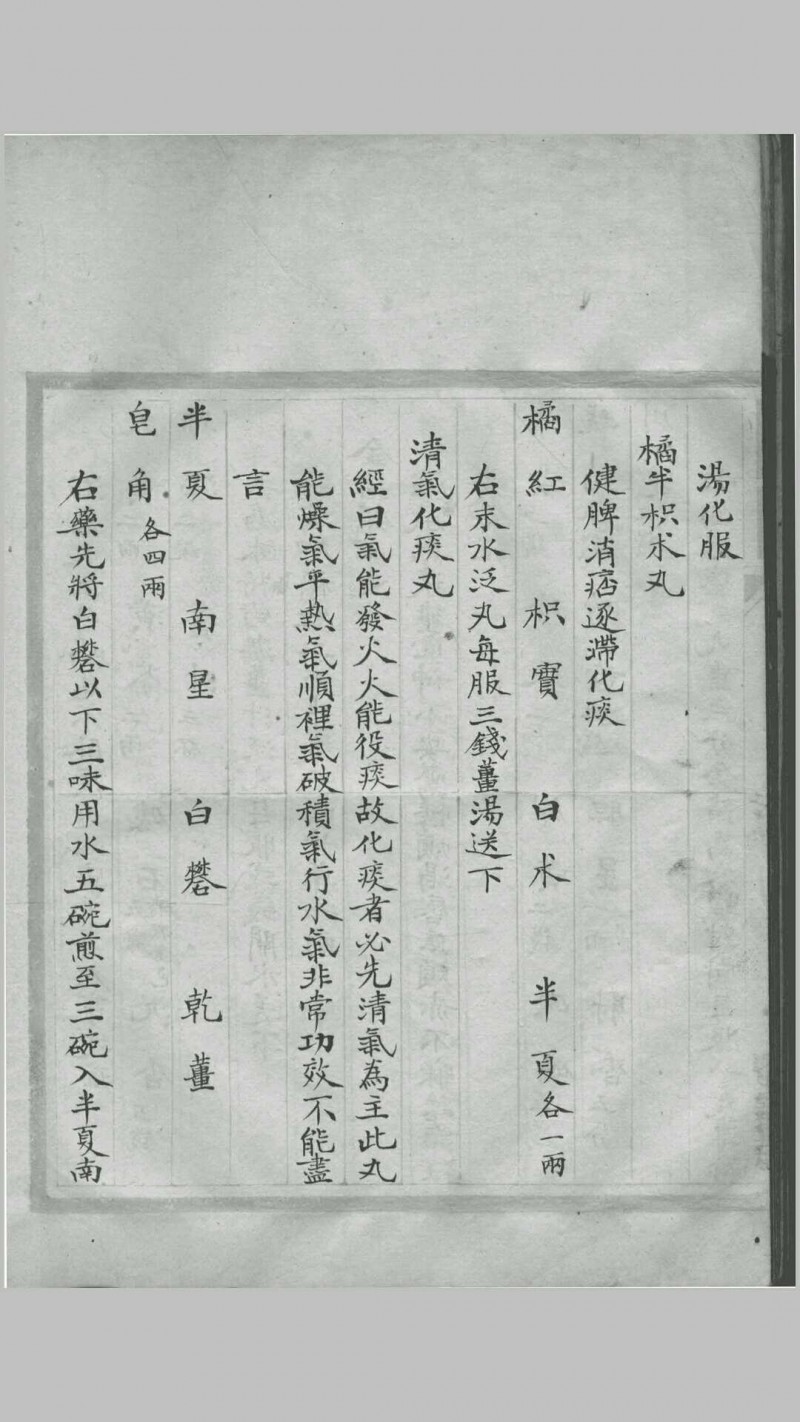 湯化服
橘半枳术丸
健脾消痞逐滯化痰
橘紅 枳實 白术 半夏各一兩
右末水泛丸每服三錢薑湯送下
清氣化痰丸
經曰氣能發火火能役痰故化痰者必先清氣為主此丸
能燥氣平熱氣順裡氣破積氣行水氣非常功效不能盡
言
半夏 南星 白礬 乾薑
皂角各四兩
右藥先將白礬以下三味用水五碗煎至三碗入半夏南